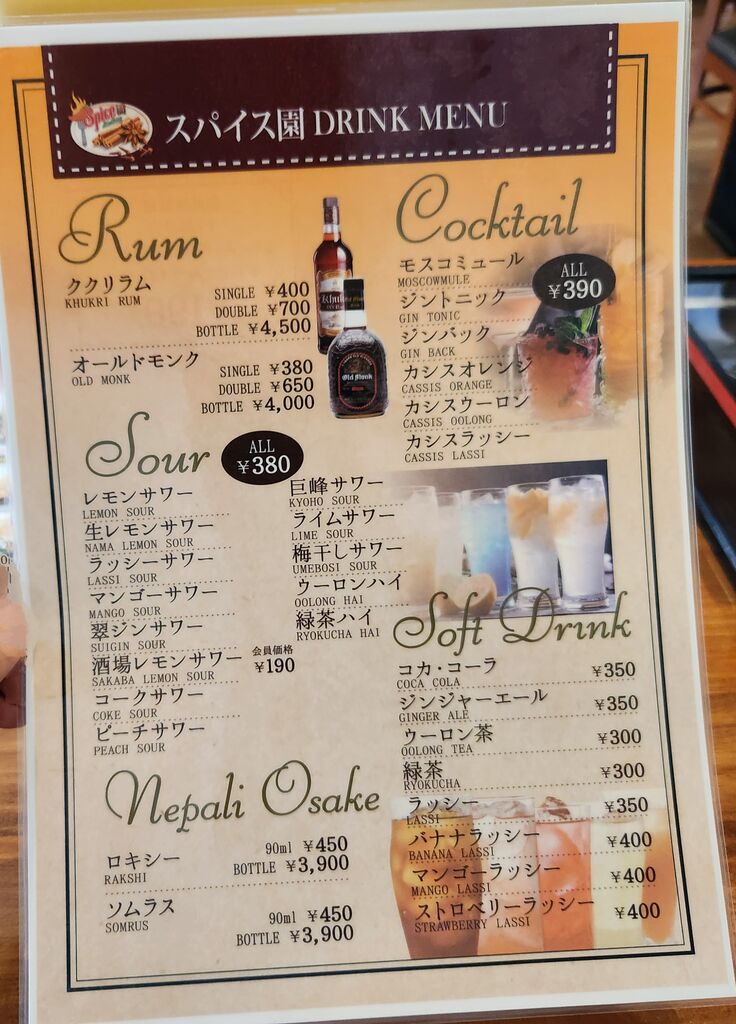 Spice園
スパイス園 DRINK MENU
Rum
ククリラム
KHUKRI RUM
SINGLE ¥400
DOUBLE ¥700
BOTTLE ¥4,500
オールドモンク
OLD MONK
SINGLE ¥380
DOUBLE ¥650
BOTTLE ¥4,000
Old Monk
Cocktail
ALL
¥390
モスコミュール
MOSCOWMULE
ジントニック
GIN TONIC
ジンバック
GIN BACK
カシスオレンジ
CASSIS ORANGE
カシスウーロン
CASSIS OOLONG
カシスラッシー
CASSIS LASSI
Sour
ALL
¥380
レモンサワー
LEMON SOUR
生レモンサワー
NAMA LEMON SOUR
ラッシーサワー
LASSI SOUR
マンゴーサワー
MANGO SOUR
翠ジンサワー
SUIGIN SOUR
酒場レモンサワー
SAKABA LEMON SOUR
会員価格
¥190
コークサワー
COKE SOUR
ピーチサワー
PEACH SOUR
巨峰サワー
KYOHO SOUR
ライムサワー
LIME SOUR
梅干しサワー
UMEBOSI SOUR
ウーロンハイ
OOLONG HAI
緑茶ハイ
RYOKUCHA HAI
Soft Drink
コカ・コーラ ¥350
COCA COLA
ジンジャーエール ¥350
GINGER ALE
ウーロン茶 ¥300
OOLONG TEA
緑茶 ¥300
RYOKUCHA
ラッシー ¥350
LASSI
バナナラッシー ¥400
BANANA LASSI
マンゴーラッシー ¥400
MANGO LASSI
ストロベリーラッシー ¥400
STRAWBERRY LASSI
Nepali Osake
ロキシー
RAKSHI
90ml ¥450
BOTTLE ¥3,900
ソムラス
SOMRUS
90ml ¥450
BOTTLE ¥3,900